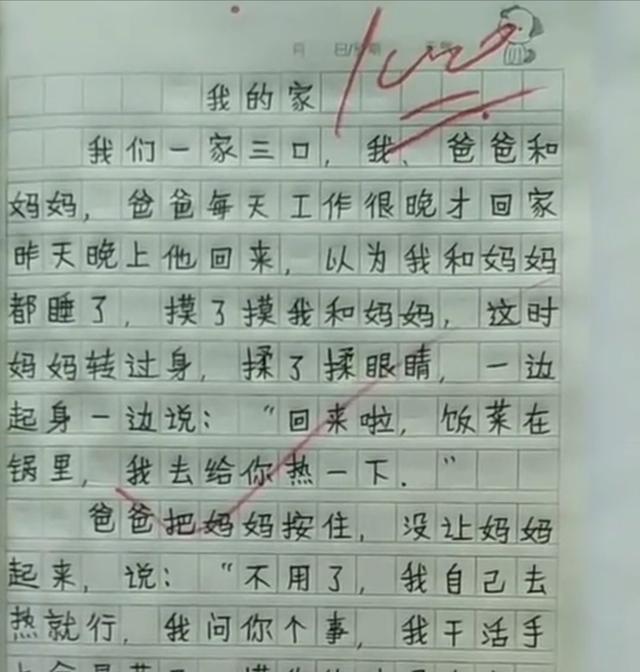 我的家
我们一家三口，我、爸爸和
妈妈，爸爸每天工作很晚才回家
昨天晚上他回来，以为我和妈妈
都睡了，摸了摸我和妈妈，这时
妈妈转过身，揉了揉眼睛，一边
起身一边说：“回来啦，饭菜在
锅里，我去给你热一下.”
爸爸把妈妈按住，没让妈妈
起来，说：“不用了，我自己去
热就行，我问你个事，我干活手